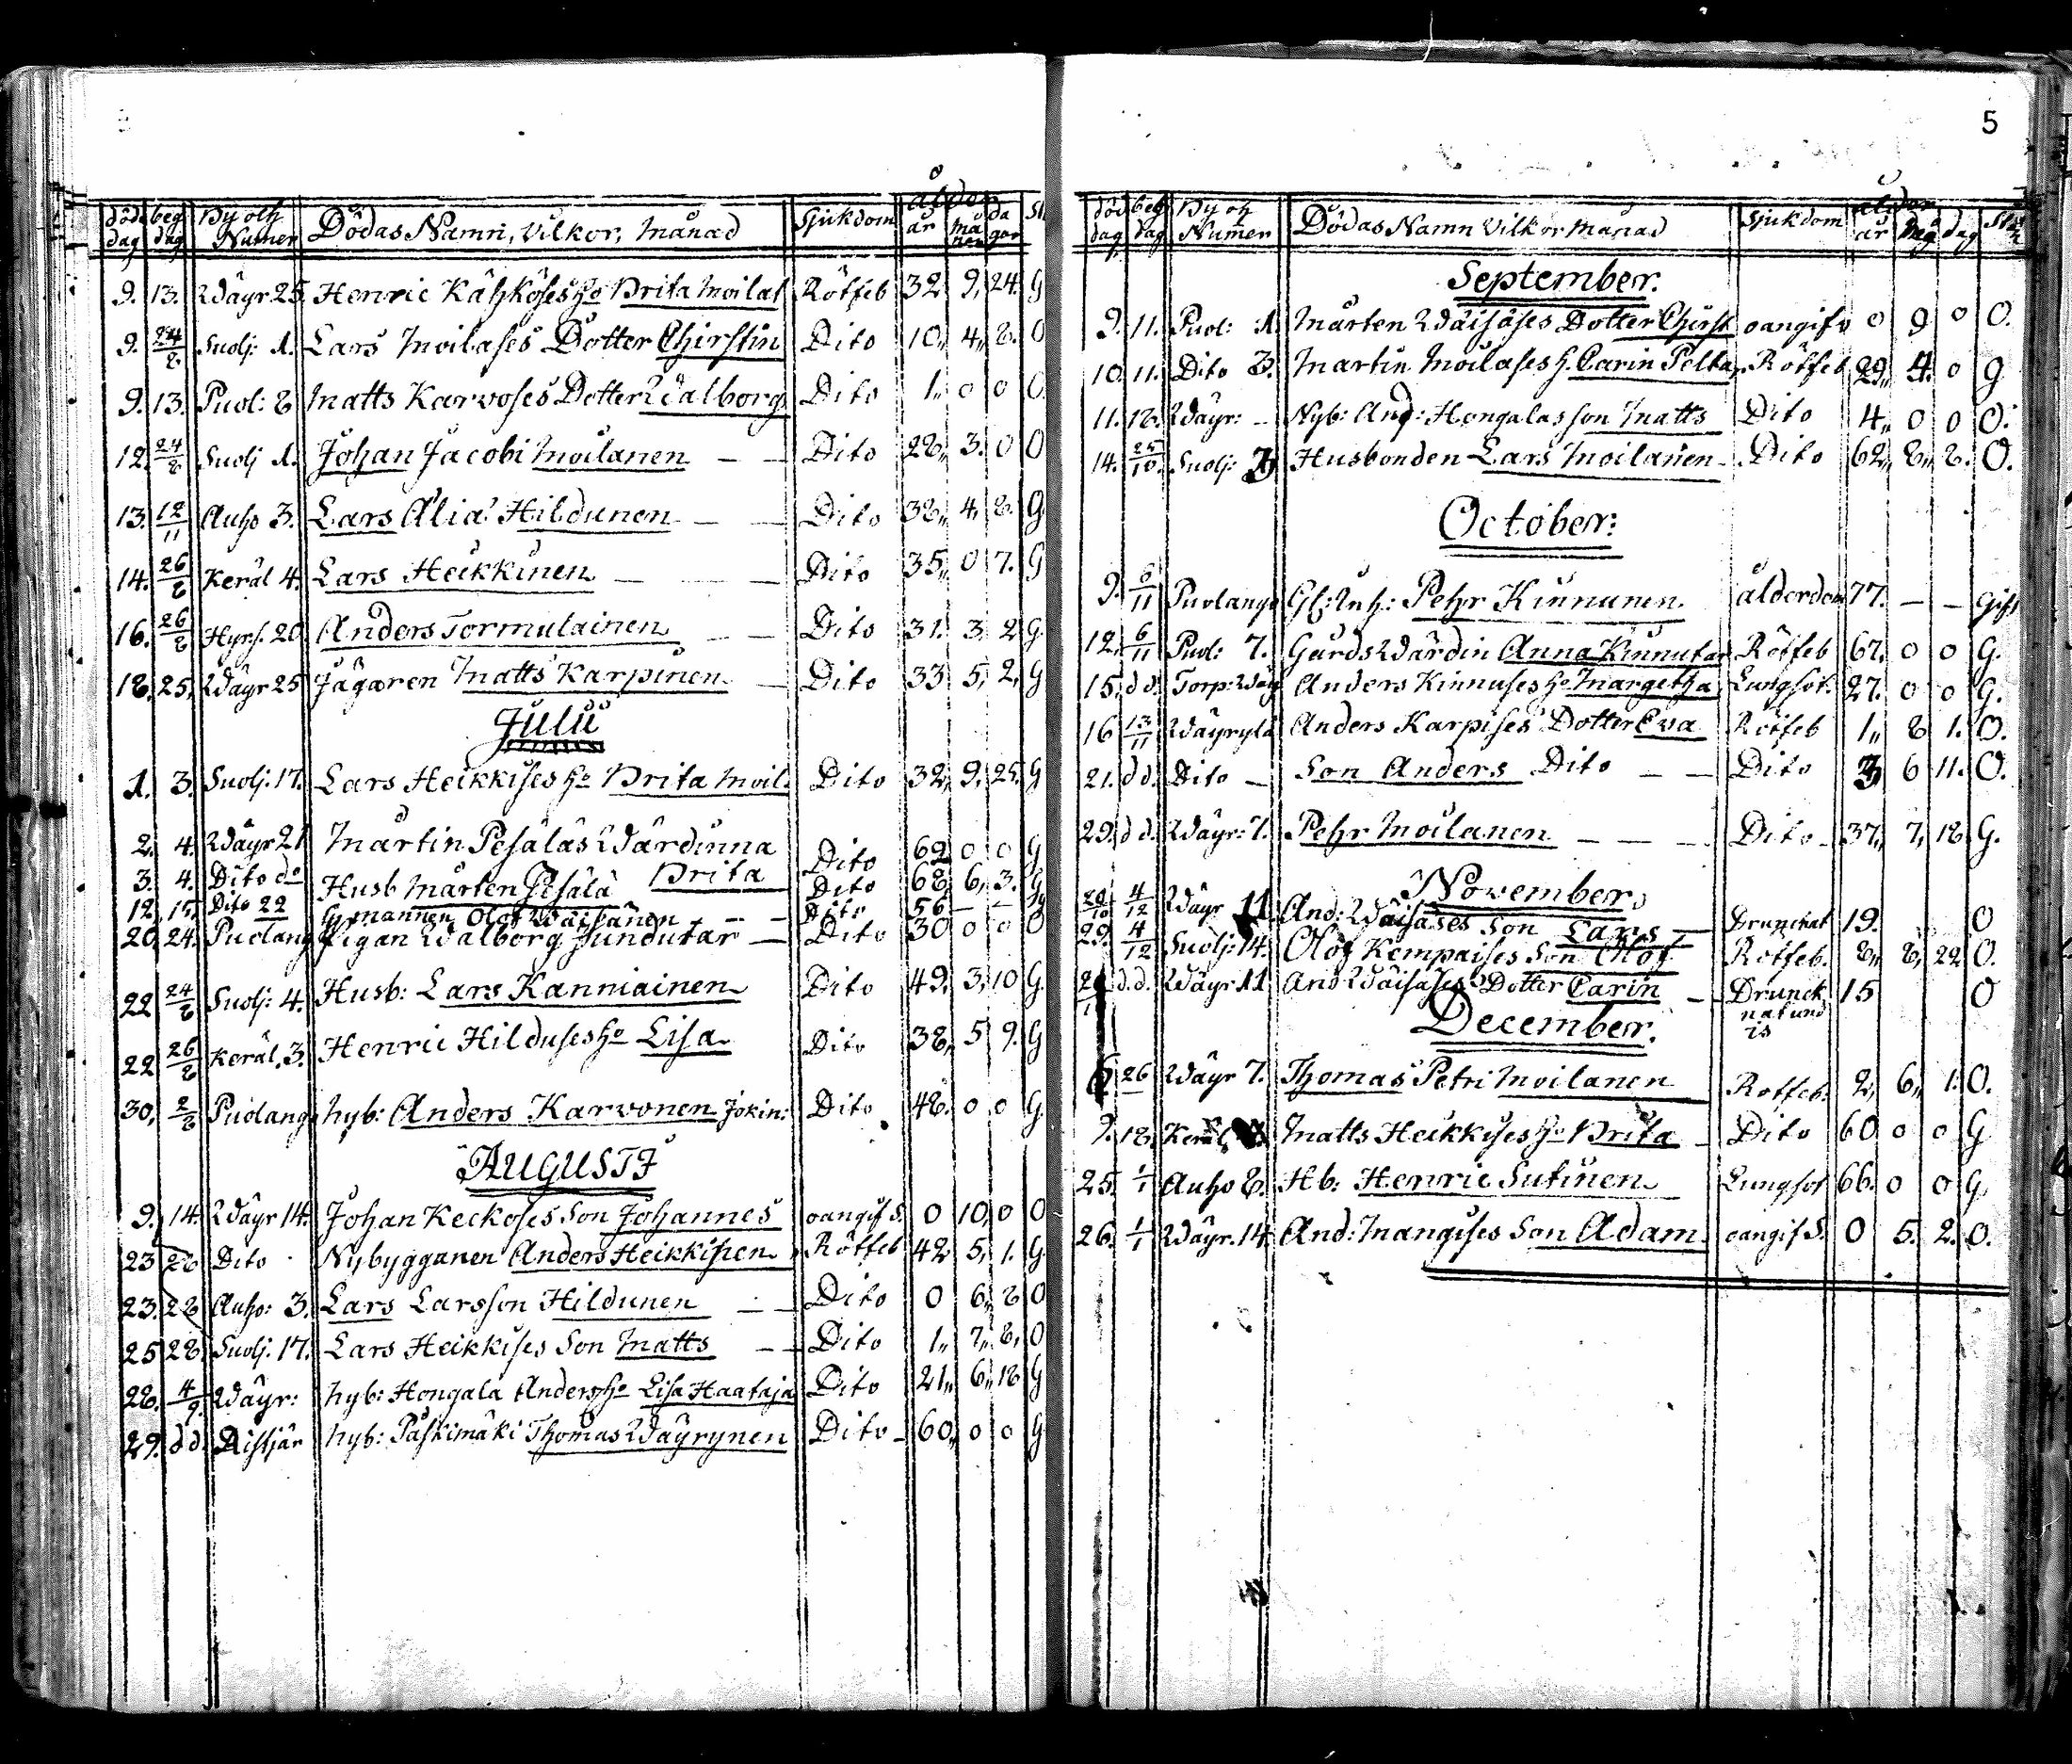 död dag beg dag By och Numer Dödas Namn, Vilkor, Månad Sjukdom ålder år må nen da gar St.
9. 13. Wäyr 25. Henric Kähköses ho Brita Moilat Rötfeb 32 9, 24. G
9. 24/8 Suolj: 1. Lars Moilases Dotter Chirstin Dito 10, 4, 8. O
9. 13. Puol: 8 Matts Karvoses Dotter Walborg Dito 1. 0 0 O
12. 24/8 Suolj 1. Johan Jacobi Moilanen — — Dito 28, 3. 0 O
13. 12/11 Auho 3. Lars Alia: Hildunen — — Dito 38, 4, 8. G
14. 26/8 Keräl 4. Lars Heikkinen — — Dito 35, 0 7. G
16. 26/8 Hyrf. 20 Anders Tormulainen — — Dito 31. 3 2 G
18. 25, Wäyr 25 Jägaren Matts Karpinen — Dito 33 5, 2, G
Julii
1. 3. Suolj. 17. Lars Heikkises ho Brita Moil. Dito 32, 9, 25. G
2. 4. Wäyr 21 Martin Pesälas Wärdinna Brita Dito 62 0 0 G
3. 4. Dito do Husb Mårten Pesälä Dito 68 6, 3. G
12. 15. Dito 22 Gmannen Olof Wäisänen — — Dito 56 — —
20. 24. Puolang Pigan Walborg Jundutar — Dito 30 0 0 O
22 24/8 Suolj: 4. Husb: Lars Kanniainen Dito 49, 3, 10 G
22 26/8 Keräl. 3. Henric Hilduses ho Lisa Dito 38, 5 9. G
30, 2/8 Puolang nyb: Anders Karvonen Jokin: Dito 48. 0 0 G
AUGUSTI
9. 14. Wäyr 14. Johan Keckoses Son Johannes oangif S. 0 10, 0 O
23 28 Dito Nybygganen Anders Heikkinen Rötfeb 42 5, 1. G
23. 28 Auho: 3. Lars Larsson Hildunen — — Dito 0 6, 8 O
25 28 Suolj. 17. Lars Heikkises Son Matts — — Dito 1, 7, 8, O
28. 4/9. Wäyr: nyb: Hongala Anders ho Lisa Haataja Dito 21, 6, 18 G
29. d d. Ristjär nyb: Päskimäki Thomas Wäyrynen Dito 60, 0 0 G
5
död dag beg dag By och Numer Dödas Namn Vilkor Månad Sjukdom ålder år dag
September.
9. 11. Puol: 1. Mårten Wäisäses Dotter Chirst oangifv 0 9 0 O.
10. 11. Dito 3. Martin Moilases h. Carin Pelta. Rötfeb 29, 4. 0 g
11. 18. Wäyr: – Nyb: And: Hongalas son Matts Dito 4, 0 0 O.
14. 25/10. Suolj: Husbonden Lars Moilanen Dito 62, 8, 8. O.
October:
9. 6/11 Puolango Pehr Kinnunen ålderdom 77. – – Gift
12, 6/11 Puol: 7. Gårds Wärdin Anna Kinnutar Rötfeb 67, 0 0 G.
15, d d. Torp: Wäy Anders Kinnuses ho Margetha Lungsot. 27. 0 0 G.
16 13/11 Wäyrylä Anders Karpises Dotter Eva Rötfeb 1, 8 1. O.
21. d d. Dito — Son Anders Dito — — Dito 6 11. O.
29. d d. Wäyr: 7. Pehr Moilanen — — — Dito 37, 7, 18 G.
November.
28/10 4/12 Wäyr 11. And: Wäisäses Son Lars — Drunknat 19. O
29. 4/12 Suolj: 14. Olof Kempaises Son Olof Rötfeb. 8, 8, 22 O.
d. d. Wäyr 11 And Wäisäses Dotter Carin — Drunck nat und is 15 O
December.
26 Wäyr 7. Thomas Petri Moilanen Rötfeb. 2, 6, 1. O.
9. 18. Keräl Matts Heikkises ho Brita — Dito 60 0 0 G
25. 1/1 Auho 8. Hb: Henric Sutinen Lungsot 66. 0 0 G
26. 1/1 Wäyr. 14. And: Mangises Son Adam. oangif S. 0 5. 2. O.